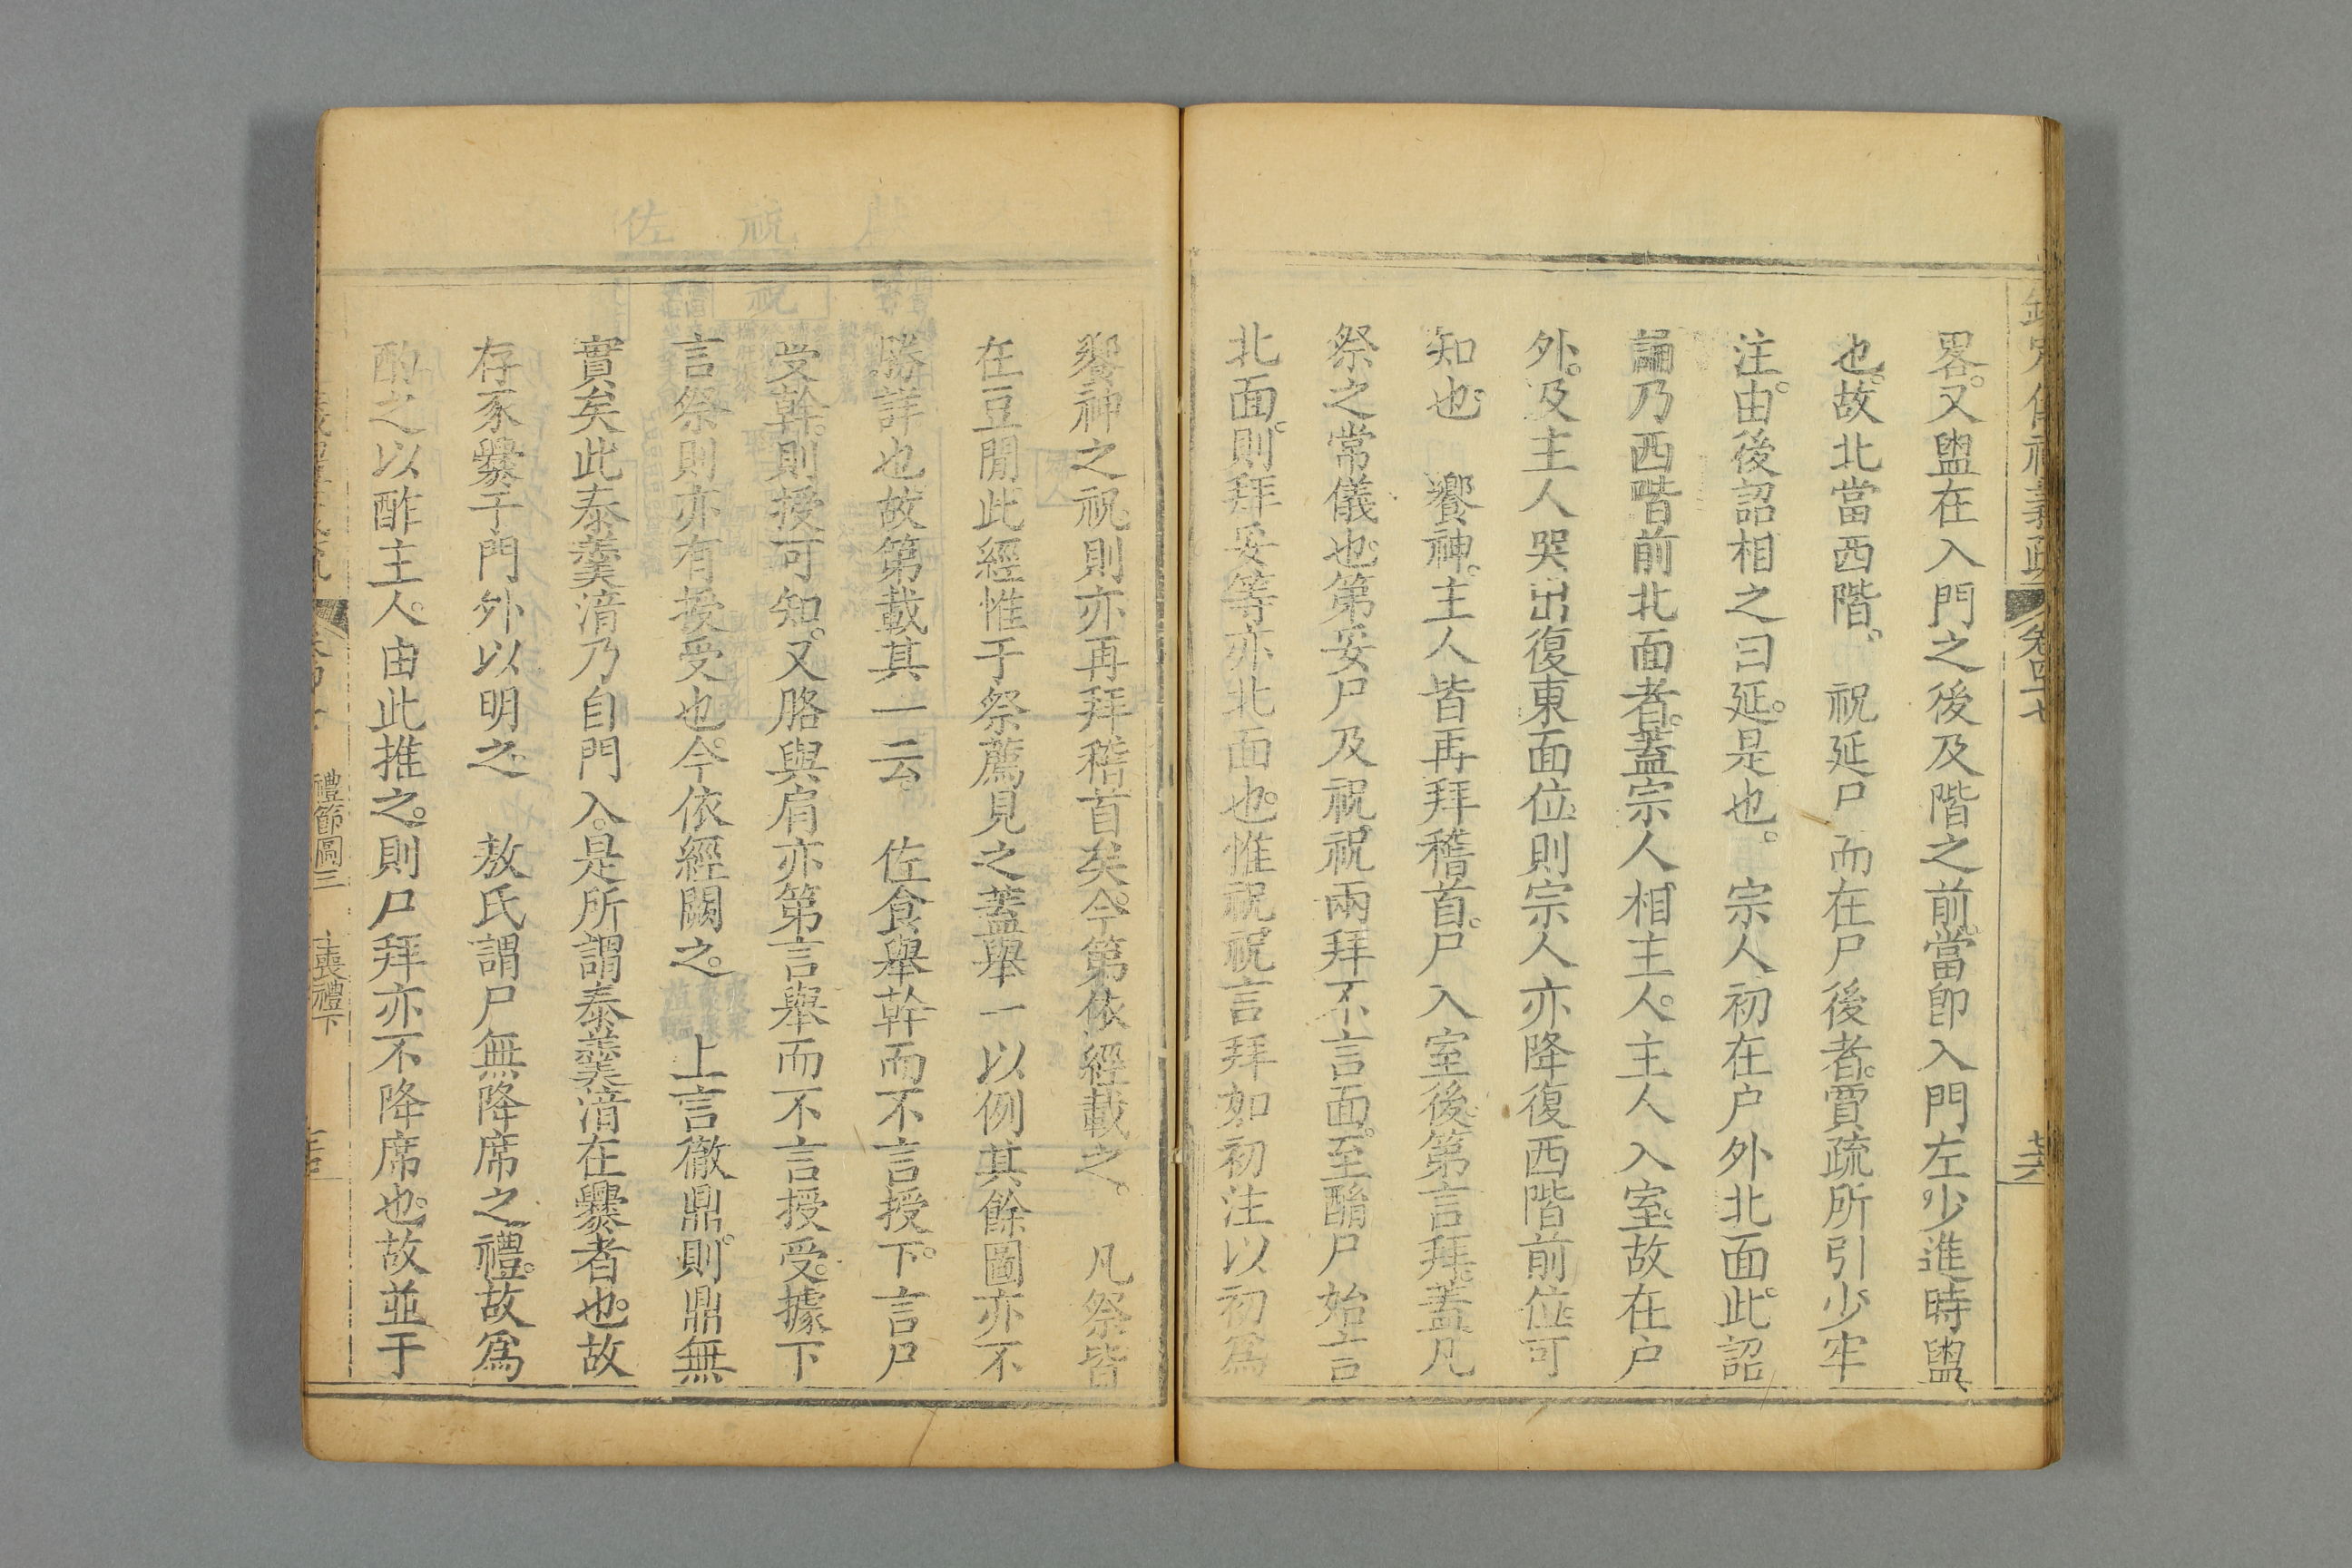 畧。又盥在入門之後及階之前。當卽入門左少進時盥
也。故北當西階。　祝延尸而在尸後者。賈疏所引少牢
注。由後詔相之曰延。是也。　宗人初在户外北面。此詔
踊乃西階前北面者。蓋宗人相主人。主人入室。故在户
外。及主人哭出復東面位。則宗人亦降復西階前位。可
知也　饗神。主人皆再拜稽首。尸入室後。第言拜。蓋凡
祭之常儀也。第妥尸及祝。祝兩拜不言面。至酳尸始言
北面。則拜妥等亦北面也。惟祝祝言拜如初注以初爲
饗神之祝。則亦再拜稽首矣。今第依經載之。　凡祭皆
在豆閒此經惟于祭薦見之蓋舉一以例其餘圖亦不
勝詳也故第載其一云。　佐食舉幹而不言授下。言尸
受幹。則授可知。又胳與肩亦第言舉而不言授受。據下
言祭則亦有授受也。今依經闕之。　上言徹鼎。則鼎無
實矣此泰羹湆乃自門入。是所謂泰羹湆在爨者也。故
存豕爨于門外以明之　敖氏謂尸無降席之禮。故爲
酌之以酢主人。由此推之。則尸拜亦不降席也。故並于
禮節圖三　喪禮下
卷四十七